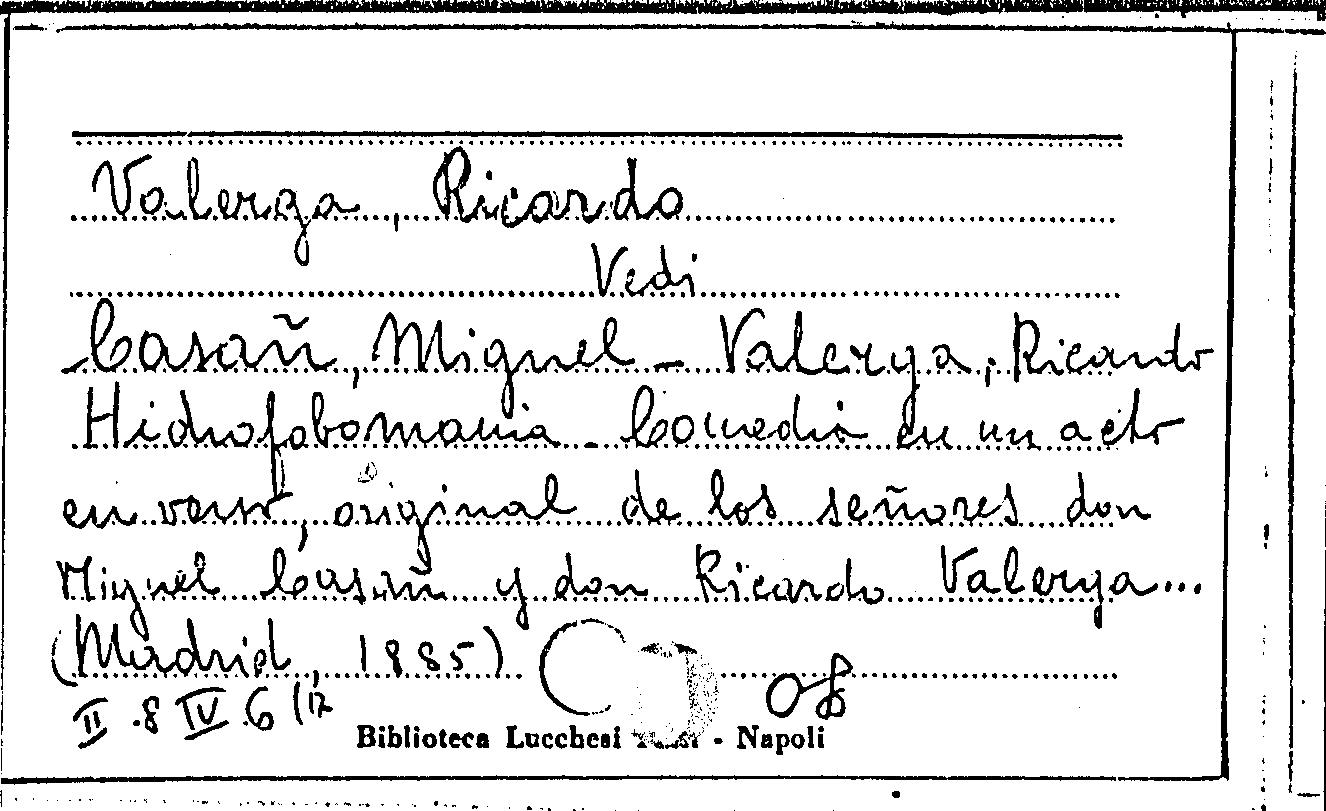 Valerga, Ricardo
Vedi
Casañ, Miguel - Valerga, Ricardo
Hidrofobomania - Comedia en un acto
en verso, original de los señores don
Miguel Casañ y don Ricardo Valerga...
(Madrid, 1885)
II .8 IV .6 (12
Biblioteca Lucchesi - Napoli